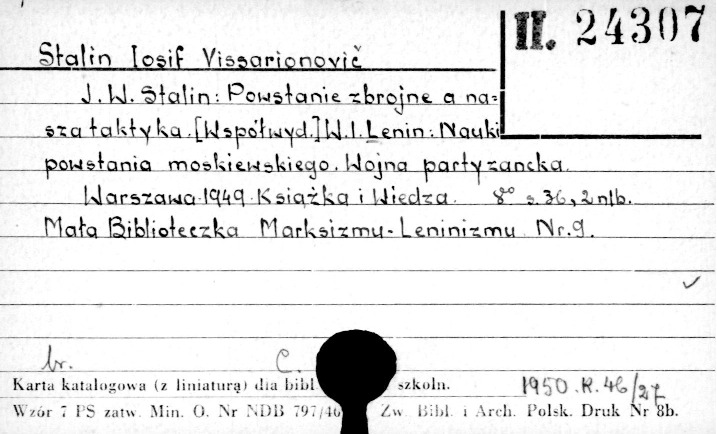 II. 24307
Stalin Iosif Vissarionovič
J.W. Stalin: Powstanie zbrojne a na=
sza taktyka. [Współwyd.] W.I. Lenin: Nauki
powstania moskiewskiego. Wojna partyzancka.
Warszawa 1949. Książka i Wiedza. 8° s. 36, 2 nlb.
Mała Biblioteczka Marksizmu-Leninizmu Nr. 9.
br. C.
Karta katalogowa (z liniaturą) dla bibl szkoln. 1950.K.46/27
Wzór 7 PS zatw. Min. O. Nr NDB 797/46 Zw. Bibl. i Arch. Polsk. Druk Nr 8b.